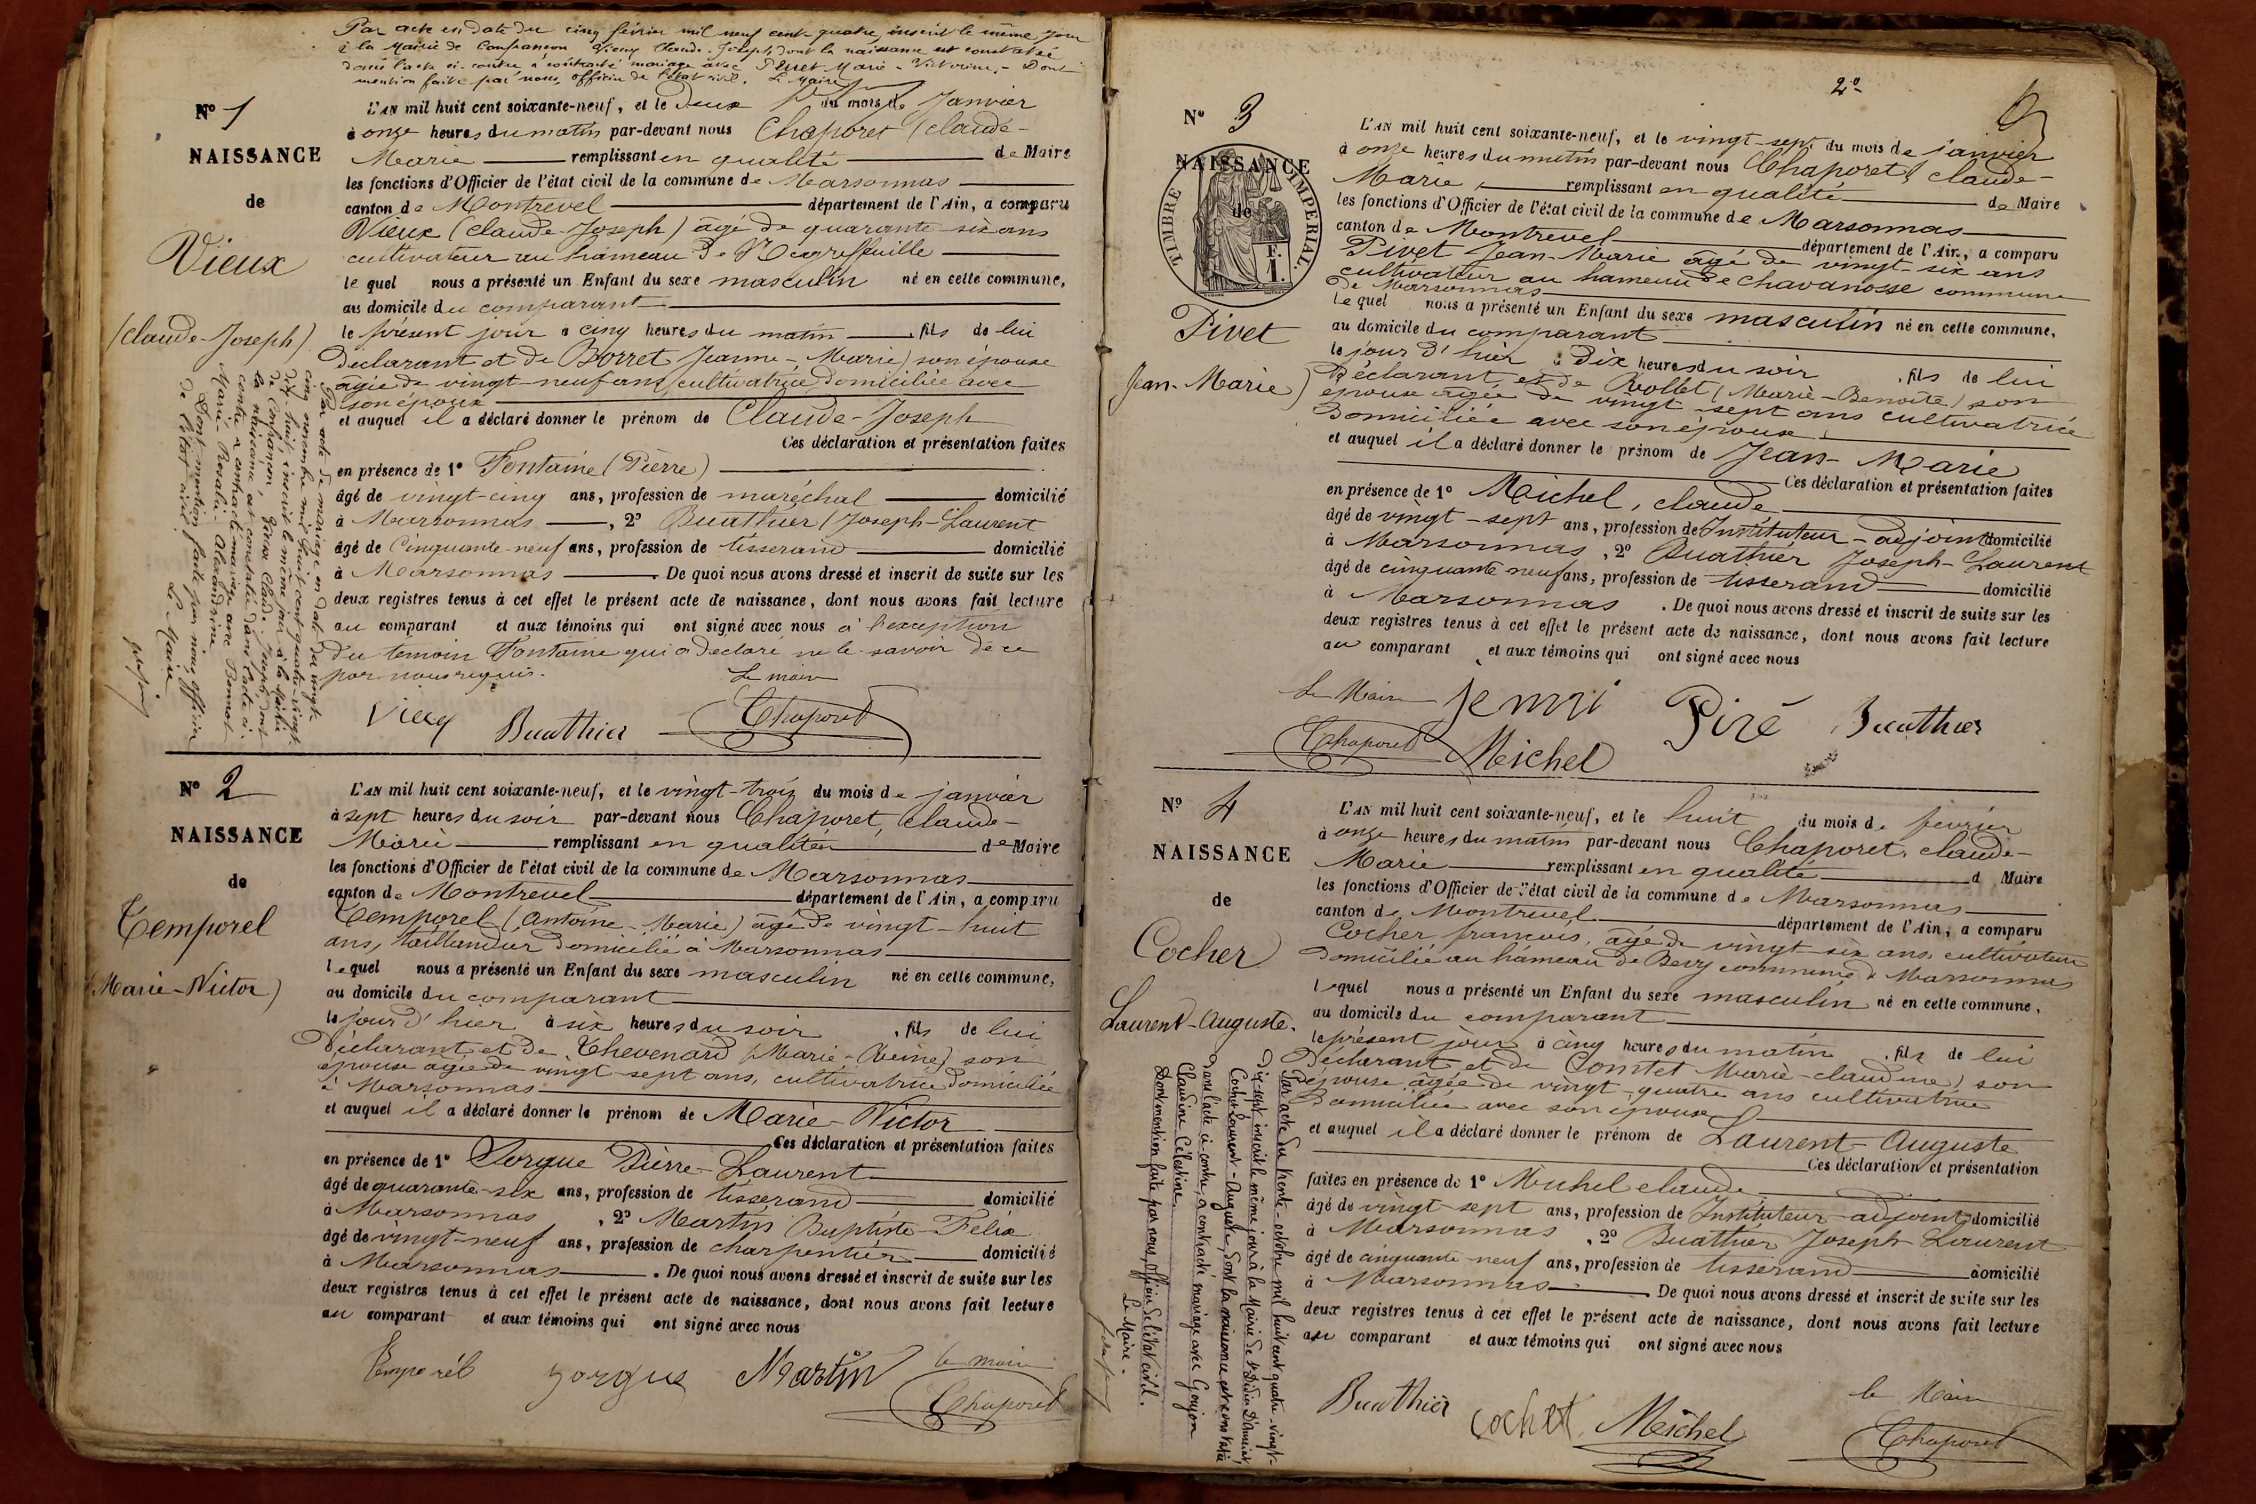 Par acte en date du cinq février mil neuf cent quatre, inscrit le même jour
à la Mairie de Confrançon Vieux Claude-Joseph, dont la naissance est constatée
dans l'acte ci-contre a contracté mariage avec Marie-Victorine. Dont
mention faite par nous, officier de l'état civil. Le Maire
N° 1
NAISSANCE
de
Vieux
(Claude-Joseph)
L'AN mil huit cent soixante-neuf, et le deux du mois de Janvier
à onze heures du matin par-devant nous Chaporet (Claude-
Marie remplissant en qualité de Maire
les fonctions d'Officier de l'état civil de la commune de Marsonnas
canton de Montrevel département de l'Ain, a comparu
Vieux (Claude-Joseph) âgé de quarante-six ans
cultivateur au hameau de
le quel nous a présenté un Enfant du sexe masculin né en cette commune,
au domicile du comparant
le présent jour à cinq heures du matin, fils de lui
Déclarant et de Borret Jeanne-Marie) son épouse
âgée de vingt-neuf ans, cultivatrice domiciliée avec
son époux
et auquel il a déclaré donner le prénom de Claude-Joseph
Ces déclaration et présentation faites
en présence de 1° Fontaine (Pierre)
âgé de vingt-cinq ans, profession de maréchal domicilié
à Marsonnas, 2° Buathier (Joseph-Laurent
âgé de Cinquante-neuf ans, profession de tisserand domicilié
à Marsonnas. De quoi nous avons dressé et inscrit de suite sur les
deux registres tenus à cet effet le présent acte de naissance, dont nous avons fait lecture
au comparant et aux témoins qui ont signé avec nous à l'exception
du témoin Fontaine qui a déclaré ne le savoir de ce
par nous requis.
Le maire
Vieux Buathier Chaporet
Par acte de mariage en date du vingt-
cinq novembre mil huit cent quatre-vingt-
dix-huit, inscrit le même jour à la Mairie
de Confrançon, Vieux Claude-Joseph, dont
la naissance est constatée dans l'acte ci-
contre a contracté mariage avec Bonnet
Marie Rosalie Alexandrine
Dont mention faite par nous, officier
de l'état civil.
Le Maire
N° 2
NAISSANCE
de
Temporel
(Marie-Victor)
L'AN mil huit cent soixante-neuf, et le vingt-trois du mois de janvier
à sept heures du soir par-devant nous Chaporet, Claude-
Marie remplissant en qualité de Maire
les fonctions d'Officier de l'état civil de la commune de Marsonnas
canton de Montrevel département de l'Ain, a comparu
Temporel (Antoine-Marie) âgé de vingt-huit
ans, taillandier domicilié à Marsonnas
lequel nous a présenté un Enfant du sexe masculin né en cette commune,
au domicile du comparant
le jour d'hier à six heures du soir, fils de lui
Déclarant et de Thevenard (Marie-Reine) son
épouse âgée de vingt-sept ans, cultivatrice domiciliée
à Marsonnas
et auquel il a déclaré donner le prénom de Marie-Victor
Ces déclaration et présentation faites
en présence de 1° Sorgue Pierre-Laurent
âgé de quarante-six ans, profession de tisserand domicilié
à Marsonnas, 2° Martin Baptiste-Felix
âgé de vingt-neuf ans, profession de charpentier domicilié
à Marsonnas. De quoi nous avons dressé et inscrit de suite sur les
deux registres tenus à cet effet le présent acte de naissance, dont nous avons fait lecture
au comparant et aux témoins qui ont signé avec nous
Temporel Sorgue Martin le maire
Chaporet
2°
N° 3
NAISSANCE
de
TIMBRE IMPERIAL
F.
1.
Pivet
Jean-Marie)
L'AN mil huit cent soixante-neuf, et le vingt-sept du mois de janvier
à onze heures du matin par-devant nous Chaporet, Claude-
Marie, remplissant en qualité de Maire
les fonctions d'Officier de l'état civil de la commune de Marsonnas
canton de Montrevel département de l'Ain, a comparu
Pivet Jean-Marie âgé de vingt-six ans
cultivateur au hameau de Chavanosse commune
de Marsonnas
lequel nous a présenté un Enfant du sexe masculin né en cette commune,
au domicile du comparant
le jour d'hier à Dix heures du soir, fils de lui
Déclarant et de Rollet (Marie-Benoîte) son
épouse âgée de vingt-sept ans cultivatrice
Domiciliée avec son époux
et auquel il a déclaré donner le prénom de Jean-Marie
Ces déclaration et présentation faites
en présence de 1° Michel, Claude
âgé de vingt-sept ans, profession de Instituteur-adjoint domicilié
à Marsonnas, 2° Buathier Joseph-Laurent
âgé de cinquante neuf ans, profession de tisserand domicilié
à Marsonnas. De quoi nous avons dressé et inscrit de suite sur les
deux registres tenus à cet effet le présent acte de naissance, dont nous avons fait lecture
au comparant et aux témoins qui ont signé avec nous
Le Maire Buathier
Chaporet Michel
N° 4
NAISSANCE
de
Cocher
Laurent-Auguste.
L'AN mil huit cent soixante-neuf, et le huit du mois de février
à onze heures du matin par-devant nous Chaporet, Claude-
Marie remplissant en qualité d Maire
les fonctions d'Officier de l'état civil de la commune de Marsonnas
canton de Montrevel département de l'Ain, a comparu
Cocher françois, âgé de vingt six ans, cultivateur
Domicilié au hameau de Bevy commune d Marsonnas
lequel nous a présenté un Enfant du sexe masculin né en cette commune,
au domicile du comparant
le présent jour à cinq heures du matin, fils de lui
Déclarant et de Comtet Marie-Claudine) son
épouse âgée de vingt-quatre ans cultivatrice
Domiciliée avec son époux
et auquel il a déclaré donner le prénom de Laurent-Auguste
Ces déclaration et présentation
faites en présence de 1° Michel Claude
âgé de vingt sept ans, profession de Instituteur-adjoint domicilié
à Marsonnas, 2° Buathier Joseph Laurent
âgé de cinquante neuf ans, profession de tisserand domicilié
à Marsonnas. De quoi nous avons dressé et inscrit de suite sur les
deux registres tenus à cet effet le présent acte de naissance, dont nous avons fait lecture
au comparant et aux témoins qui ont signé avec nous
Buathier Cochet Michel le Maire
Chaporet
Par acte du trente-octobre mil huit cent quatre-vingt-
dix sept, inscrit le même jour à la Mairie de St Didier D'Aussiat,
Cochet Laurent-Auguste, dont la naissance est constatée
dans l'acte ci-contre, a contracté mariage avec Goujon
Claudine Célestine
Dont mention faite par nous, officier de l'état civil.
Le Maire.